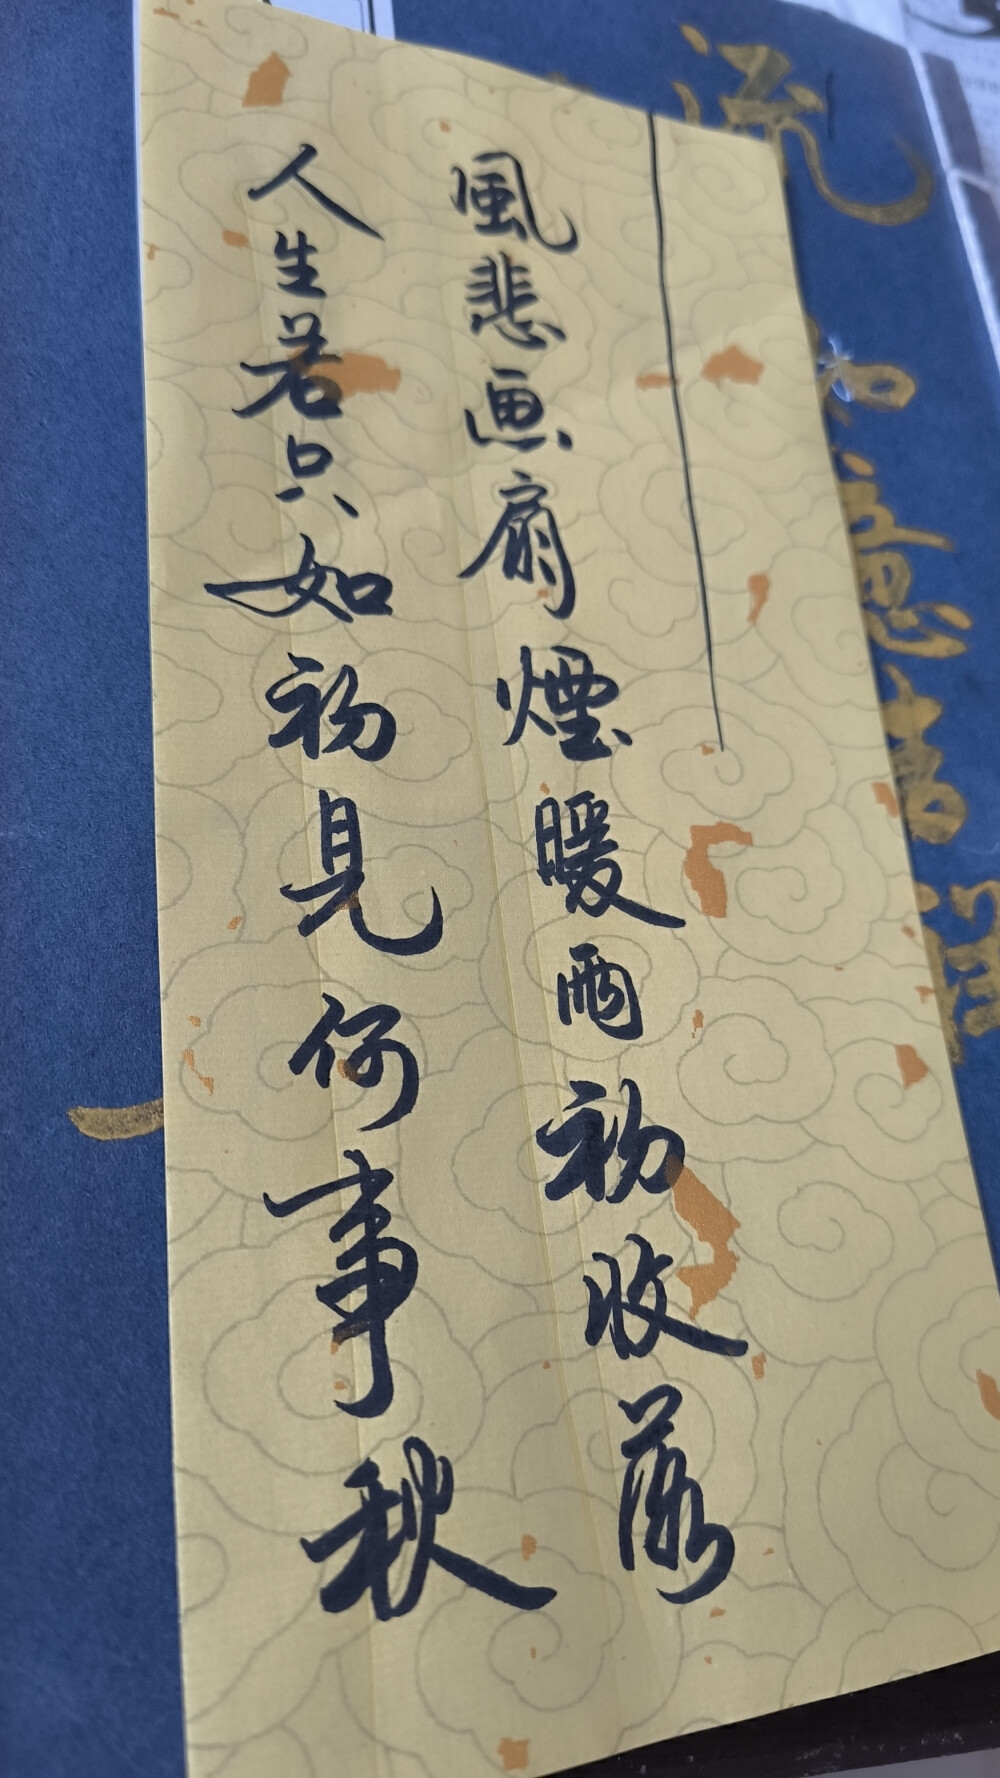 人生若只如初見何事秋
風悲画扇煙暖雨初收落